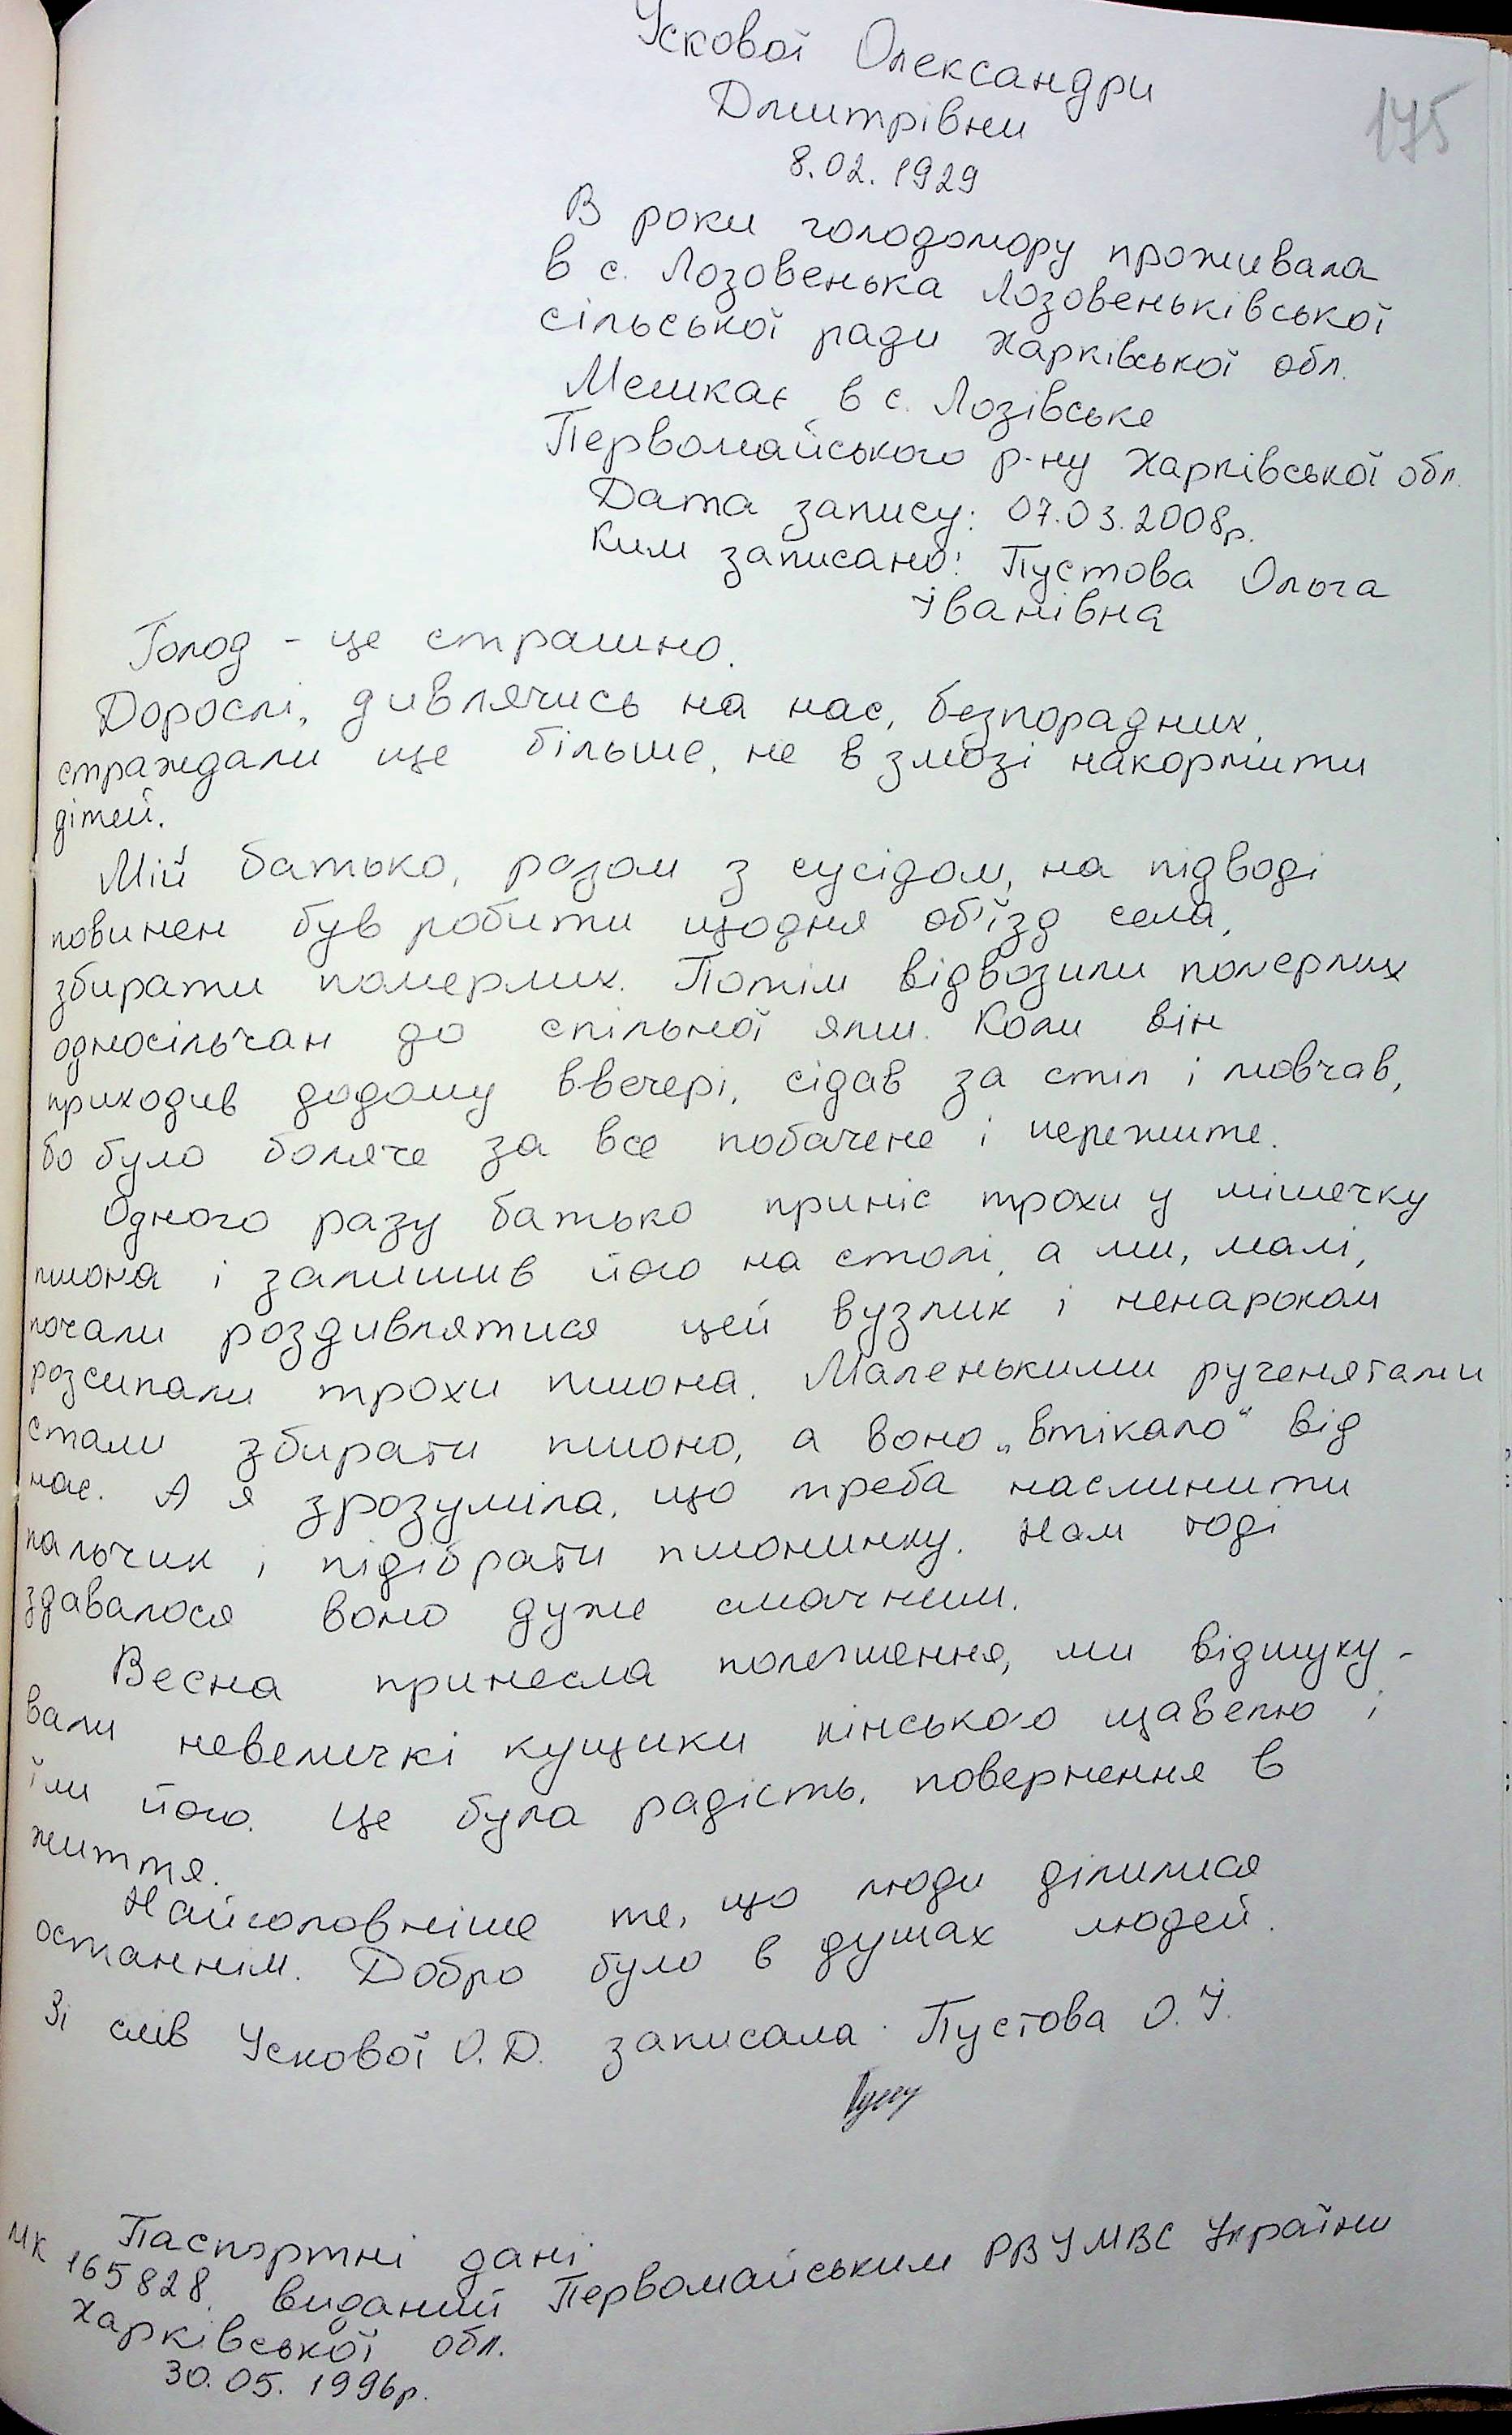 175
Ускової Олександри
Дмитрівни
8.02.1929
В роки голодомору проживала
в с. Лозовенька Лозовеньківської
сільської ради Харківської обл.
Мешкає в с. Лозівське
Первомайського р-ну Харківської обл.
Дата запису: 07.03.2008р.
Ким записано: Пустова Ольга
Іванівна
Голод - це страшно.
Дорослі, дивлячись на нас, безпорадних,
страждали ще більше, не в змозі накормити
дітей.
Мій батько, разом з сусідом, на підводі
повинен був робити щодня об'їзд села,
збирати померлих. Потім відвозили померлих
односільчан до спільної ями. Коли він
приходив додому ввечері, сідав за стіл і мовчав,
бо було боляче за все побачене і пережите.
Одного разу батько приніс трохи у мішечку
пшона і залишив його на столі, а ми, малі,
почали роздивлятися цей вузлик і ненароком
розсипали трохи пшона. Маленькими рученятами
стали збирати пшоно, а воно „втікало“ від
нас. А я зрозуміла, що треба наслинити
пальчик і підібрати пшонинку. Нам тоді
здавалося воно дуже смачним.
Весна принесла полегшення, ми відшуку-
вали невеличкі кущики кінського щавелю і
їли його. Це була радість, повернення в
життя.
Найголовніше те, що люди ділилися
останнім. Добро було в душах людей.
Зі слів Ускової О.Д. записала Пустова О.І.
Паспортні дані:
МК 165828. виданий Первомайським РВУМВС України
Харківської обл.
30.05.1996р.